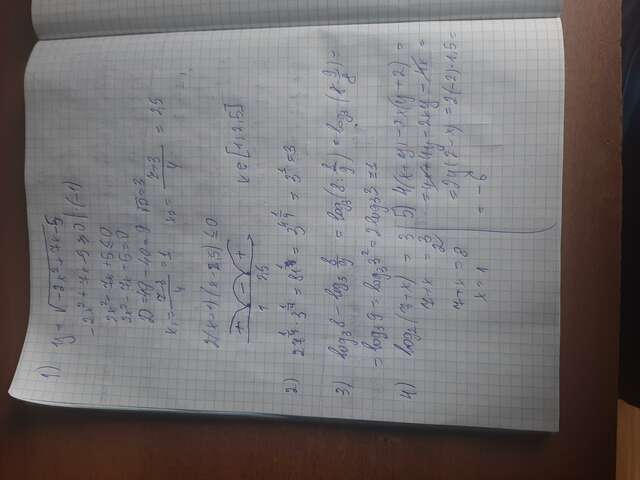 1) y = √-2x²+7x-5
-2x²+7x-5≥0 | (-1)
2x²-7x+5≤0
2x²-7x+5=0
D=49-40=9 √D=3
x₁ = (7-3)/4 = 1 x₂ = (7+3)/4 = 2,5
2(x-1)(x-2,5)≤0
+ - +
1 2,5 x∈[1;2,5]
2) 27^¼·3^¼ = 81^¼ = 3^(4·¼) = 3¹ = 3
3) log₃8 - log₃ 8/9 = log₃(8:8/9) = log₃(8·9/8) =
= log₃9 = log₃3² = 2log₃3 =
4) log₂(7+x) = 3
7+x = 2³
7+x = 8
x = 1
5) 4(x+y)-2x(y+2) =
= 4x+4y-2xy-4x =
= 2y(2-x) = 2(-2)·1,5 =
= -6